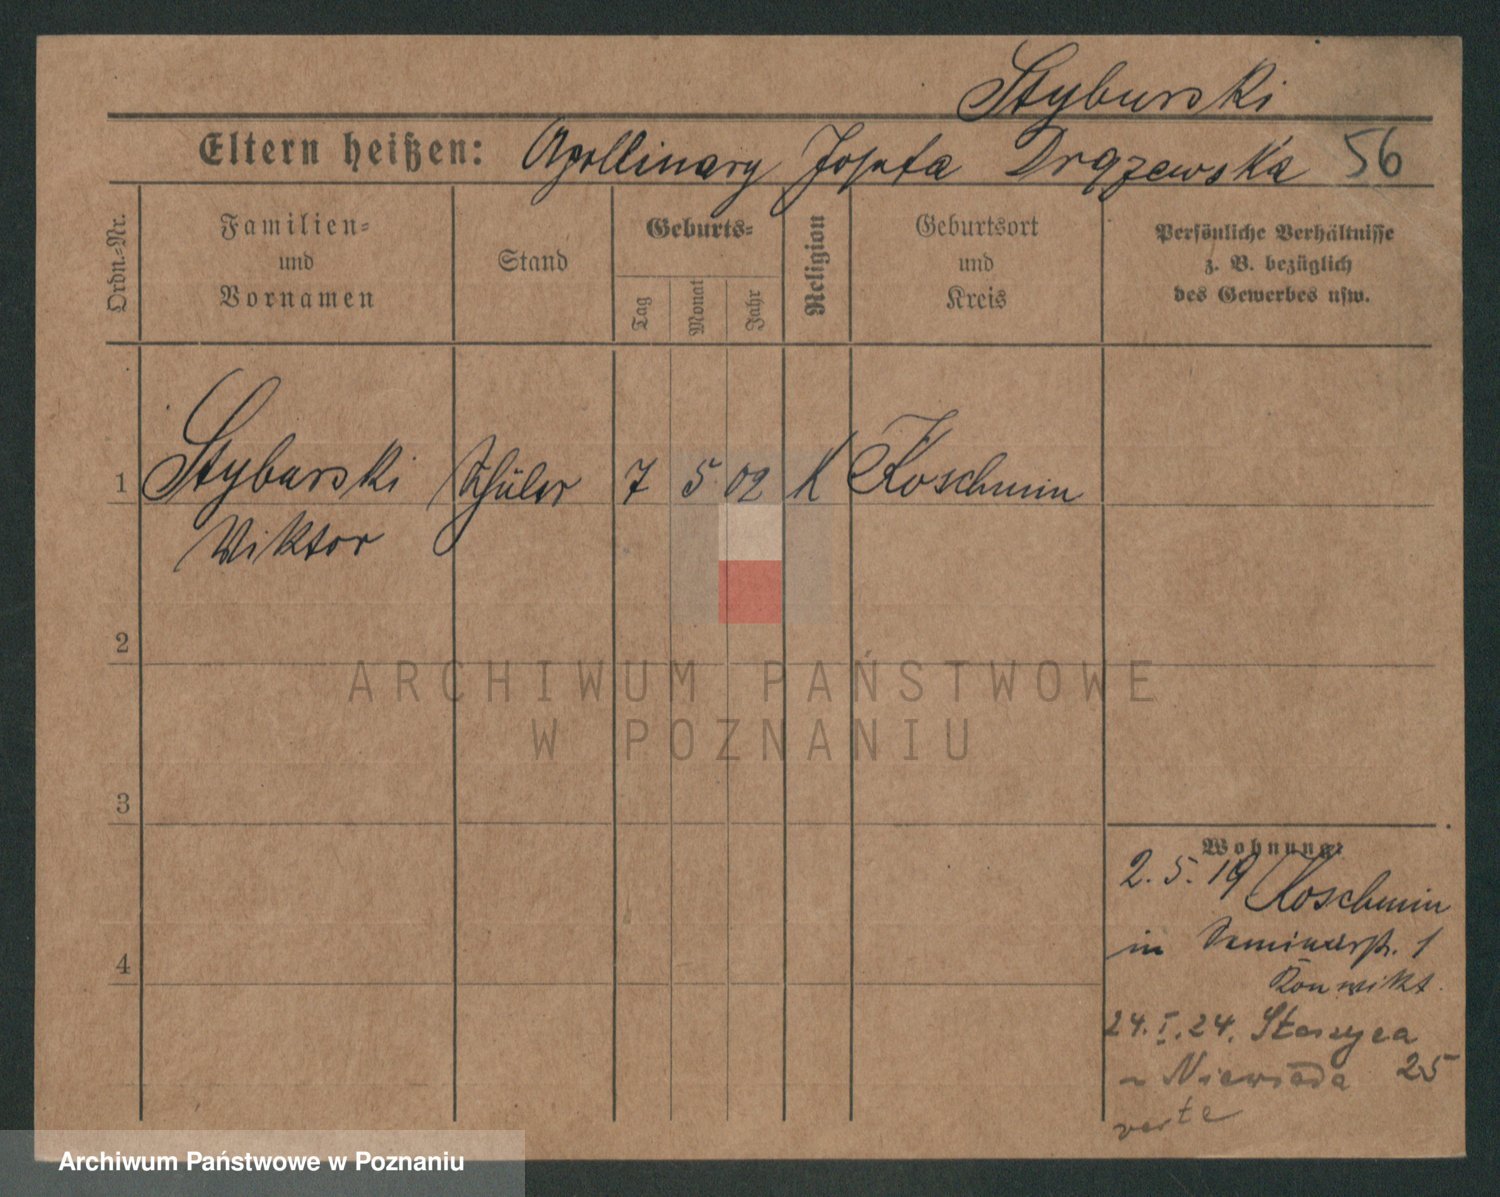 Styburski
Eltern heißen: Apollinary Josefa Drązewska 56
Ordn.-Nr.
Familien-
und
Vornamen
Stand
Geburts-
Tag
Monat
Jahr
Religion
Geburtsort
und
Kreis
Persönliche Verhältnisse
z. B. bezüglich
des Gewerbes usw.
1 Styburski Schüler 7 5 02 K Koschmin
Viktor
2
3
4
Wohnung:
2. 5. 19 Koschmin
in Seminarstr. 1
Konwikt.
24. I. 24. Staszyca
25
verte
ARCHIWUM PAŃSTWOWE
W POZNANIU
Archiwum Państwowe w Poznaniu